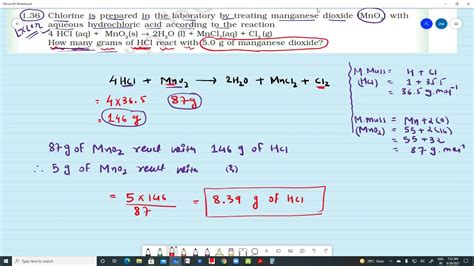 Microsoft Whiteboard
1.36 Chlorine is prepared in the laboratory by treating manganese dioxide (MnO₂) with
aqueous hydrochloric acid according to the reaction
4 HCl (aq) + MnO₂(s) → 2H₂O (l) + MnCl₂(aq) + Cl₂ (g)
How many grams of HCl react with 5.0 g of manganese dioxide?
4 HCl + MnO₂ → 2H₂O + MnCl₂ + Cl₂
= 4×36.5 87g
= 146 g
M. Mass = H + Cl
(HCl) = 1 + 35.5
= 36.5 g.mol⁻¹
M.mass = Mn+2(O)
(MnO₂) = 55 + 2(16)
= 55 + 32
= 87 g.mol⁻¹
87g of MnO₂ react with 146 g of HCl
∴ 5 g of MnO₂ react with (?)
= 5×146 / 87 = 8.39 g of HCl